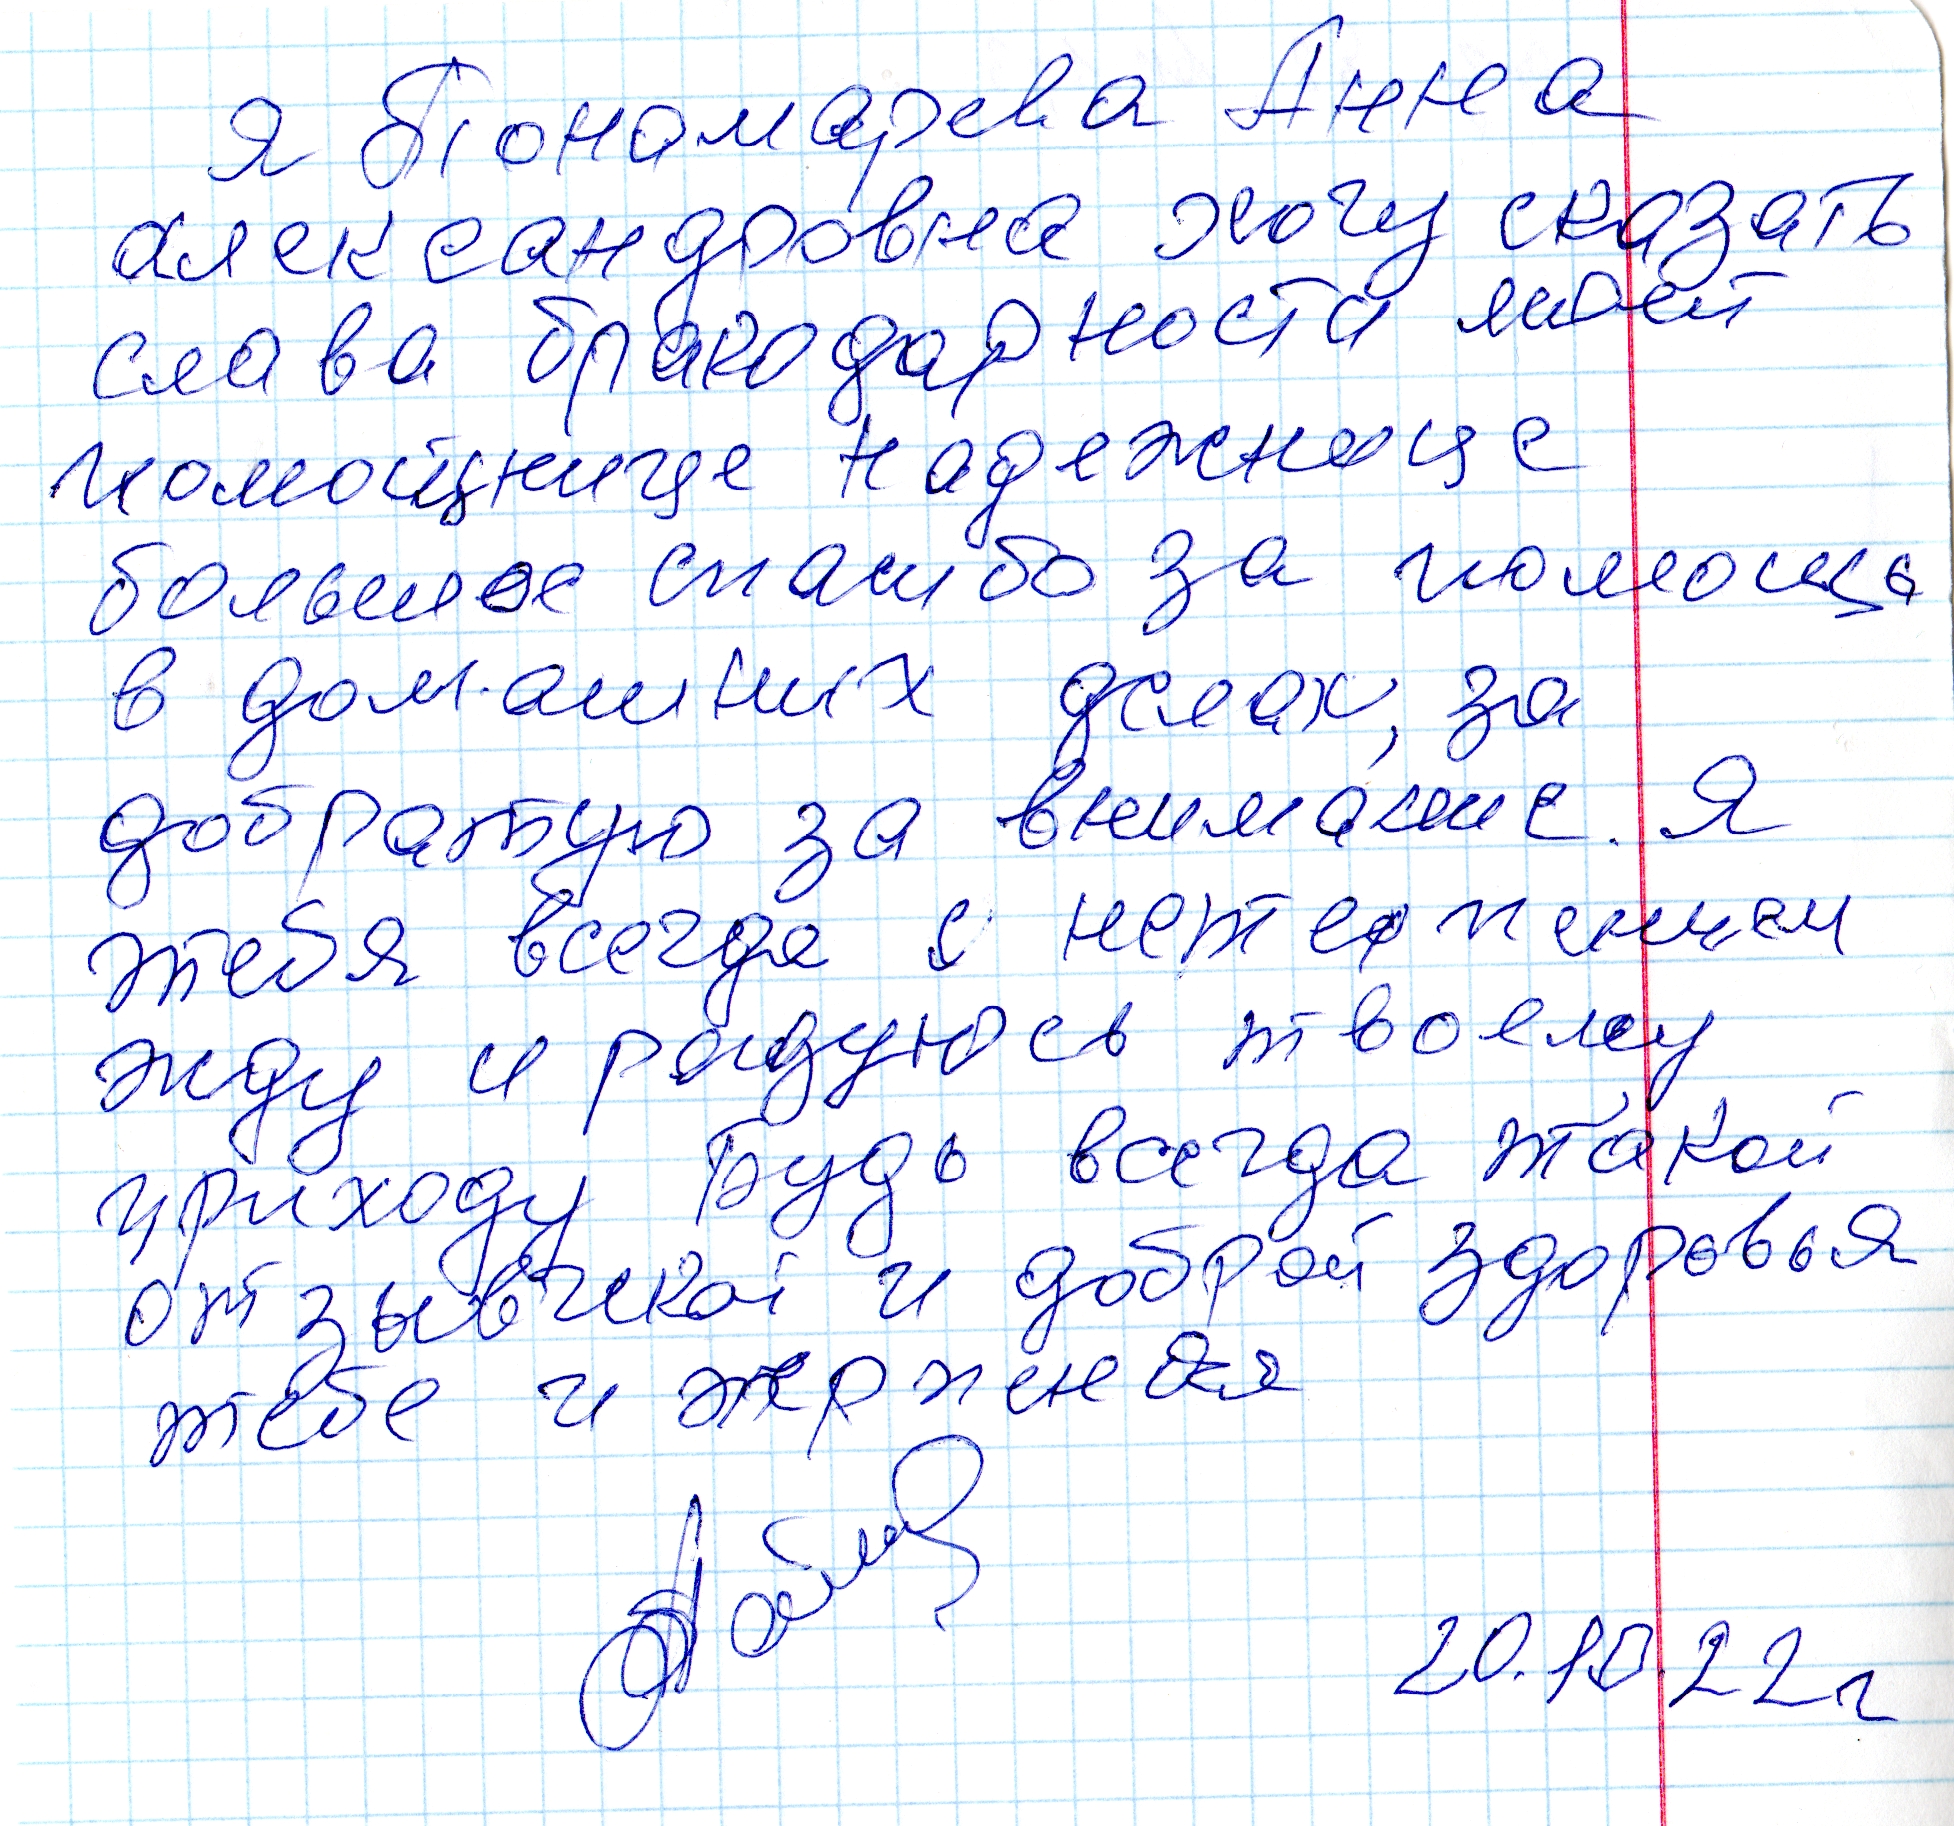 Я Пономарева Анна
александровна хочу сказать
слава благодарности моей
помощнице надежнеце
большое спасибо за помощь
в домашних делах, за
добратую за внимание. Я
тебя всегда с нетерпением
жду и радуюсь твоему
приходу Будь всегда такой
отзывчикой и доброй здоровья
тебе и терпения
20.10.22г